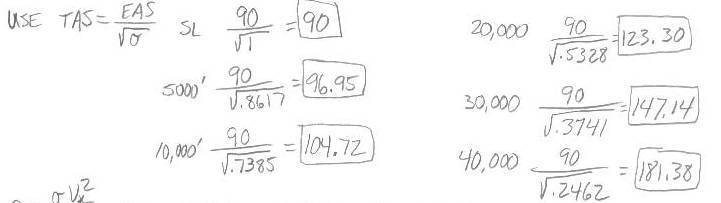 USE TAS = EAS/√σ SL 90/√1 = 90
5000' 90/√.8617 = 96.95
10,000' 90/√.7385 = 104.72
20,000 90/√.5328 = 123.30
30,000 90/√.3741 = 147.14
40,000 90/√.2462 = 181.38